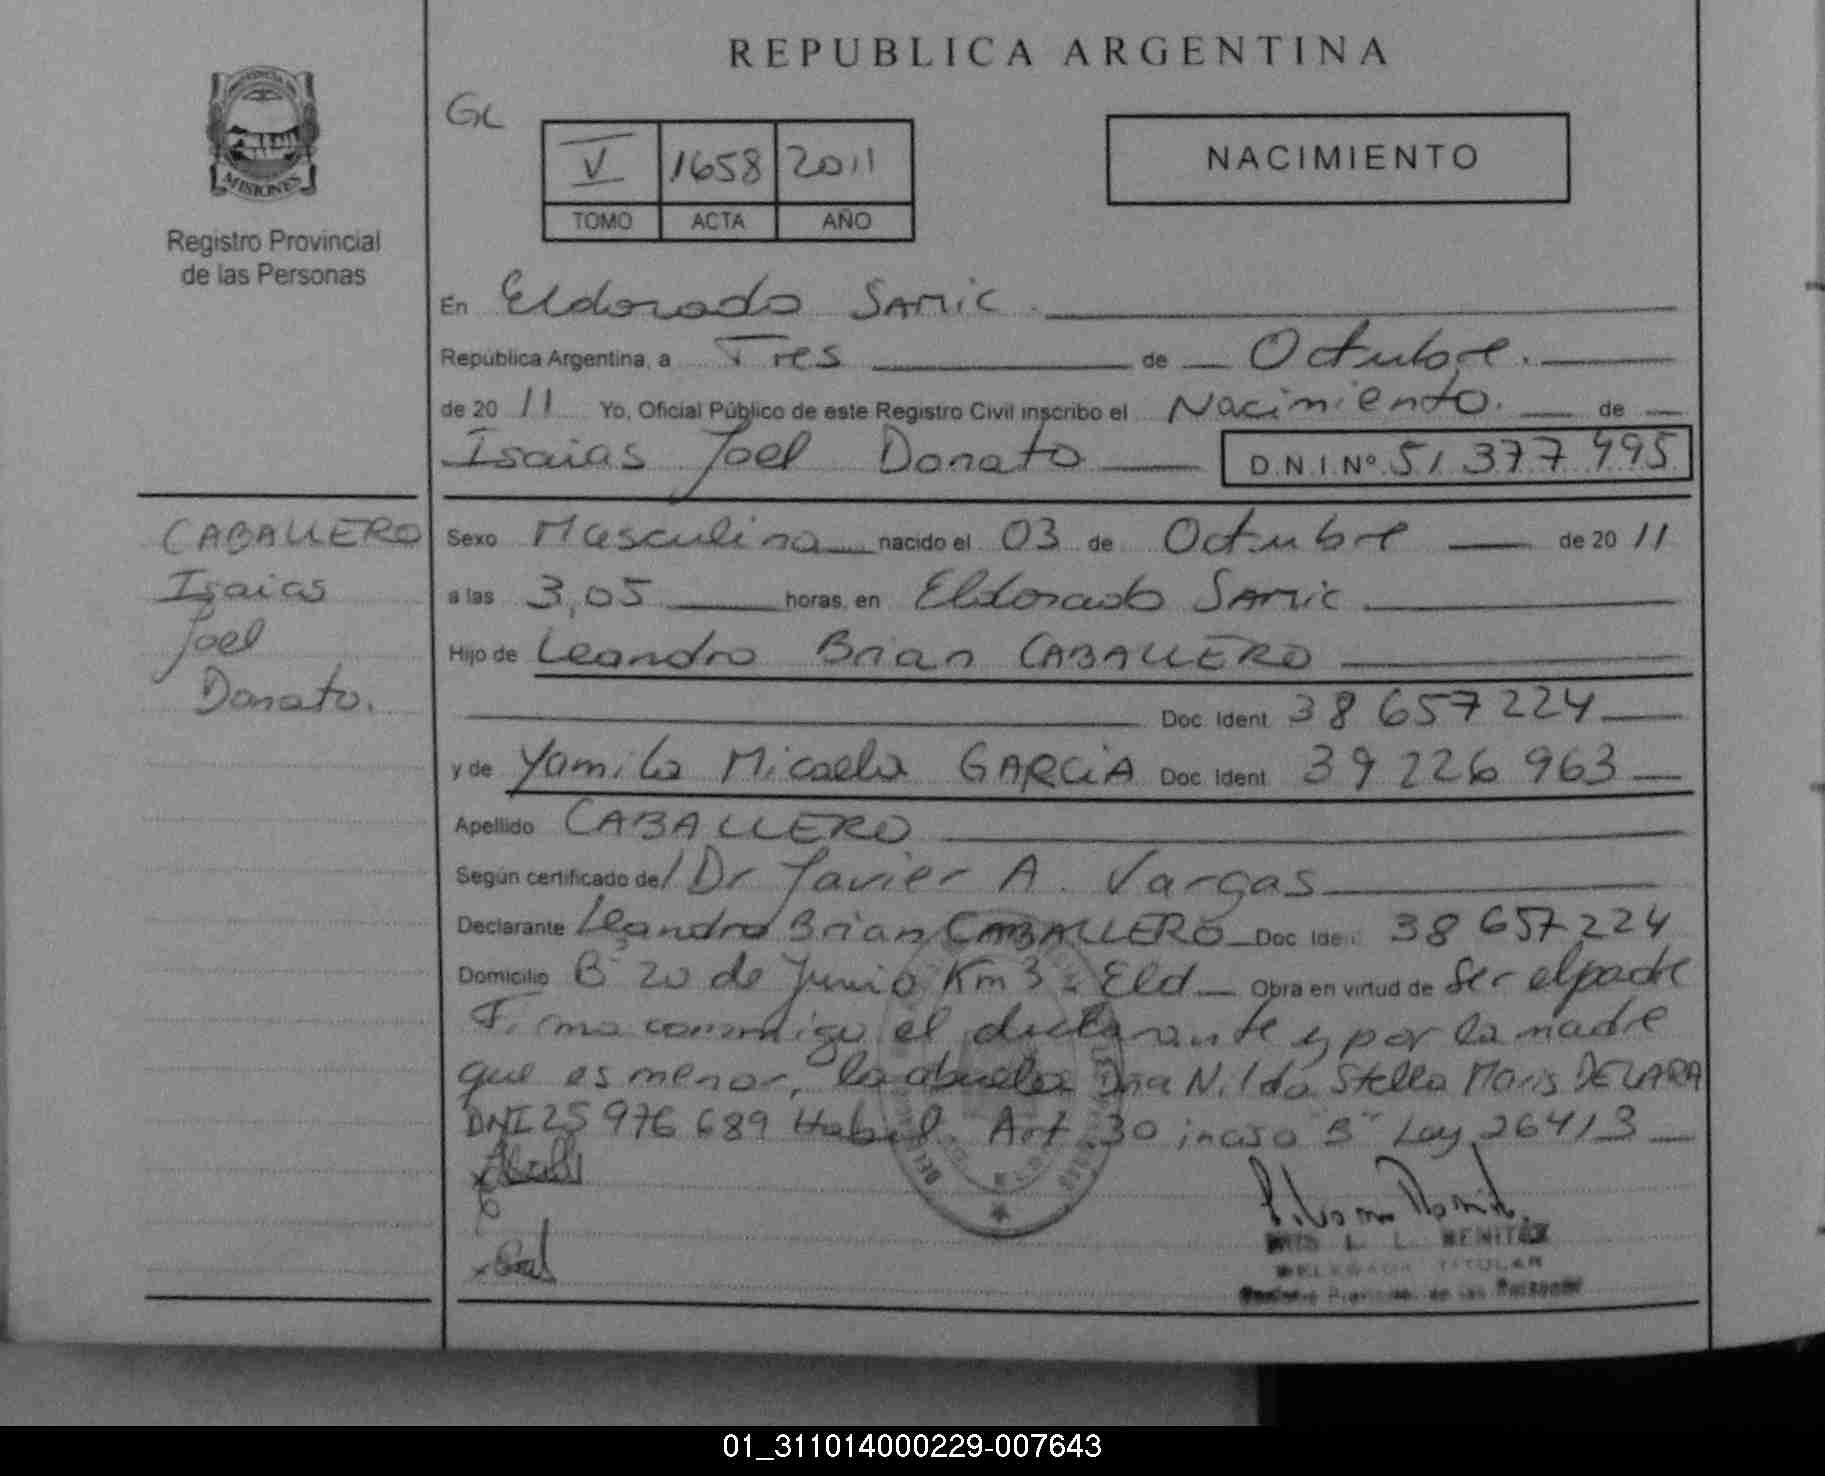 REPUBLICA ARGENTINA
PROVINCIA
MISIONES
Registro Provincial
de las Personas
GL
V 1658 2011
TOMO ACTA AÑO
NACIMIENTO
En Eldorado SAMIC
República Argentina, a Tres de Octubre.
de 20 11 Yo, Oficial Público de este Registro Civil inscribo el Nacimiento. de
Isaias Joel Donato D.N.I Nº 51.377.995
CABALLERO
Isaias
Joel
Donato.
Sexo Masculino nacido el 03 de Octubre de 20 11
a las 3,05 horas, en Eldorado SAMIC
Hijo de Leandro Brian CABALLERO
Doc. Ident. 38 657 224
y de Yamila Micaela GARCIA Doc. Ident. 39 226 963
Apellido CABALLERO
Según certificado del Dr Javier A. Vargas
Declarante Leandro Brian CABALLERO Doc. Iden. 38 657 224
Domicilio Bº 20 de Junio Km 3 Eld Obra en virtud de Ser el padre
Firma conmigo el declarante y por la madre
que es menor, la abuela Dña Nilda Stella Maris DE LARA
DNI 25 976 689 Habil. Art. 30 inciso "B" Ley 26413
L. L. BENITEZ
DELEGADA TITULAR
Registro Provincial de las Personas
01_311014000229-007643